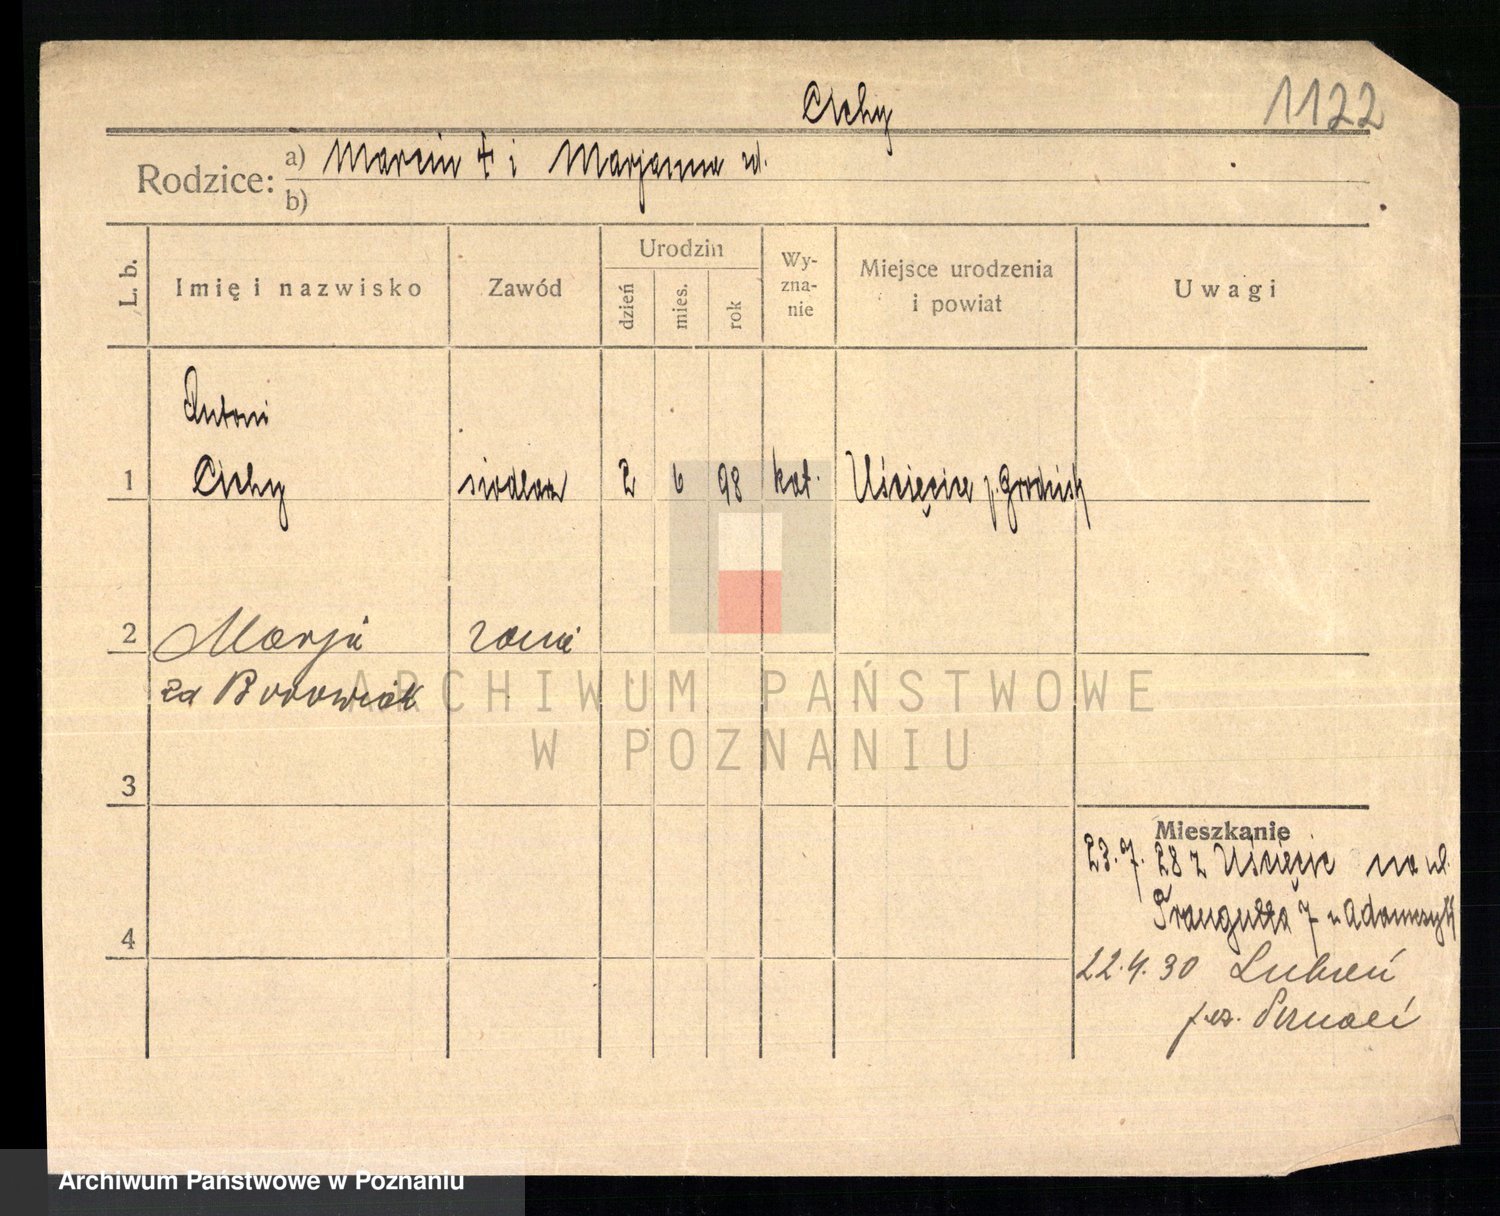 1122
Cichy
Rodzice: a) Marcin † i Marjanna zd.
b)
L. b.
Imię i nazwisko
Zawód
Urodzin
dzień
mies.
rok
Wy-
zna-
nie
Miejsce urodzenia
i powiat
Uwagi
Antoni
1 Cichy siodlarz 2 6 98 kat. Uścięcice p. Grodzisk
2 Marja żona
zd Borowiak
ARCHIWUM PAŃSTWOWE
W POZNANIU
3
Mieszkanie
23.7.28 z Uścięcic na ul.
Traugutta 7 u Adamczyk
4
22.4.30 Luboń
p. Poznań
Archiwum Państwowe w Poznaniu